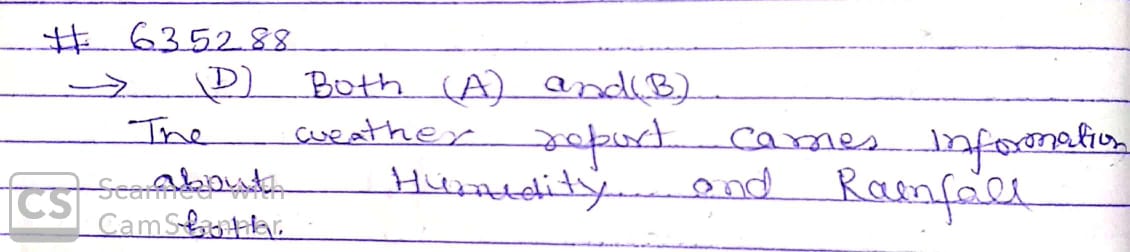 # 635288
→ (D) Both (A) and (B).
The weather report carries Information
about Humidity and Rainfall
both.
CS Scanned with
CamScanner